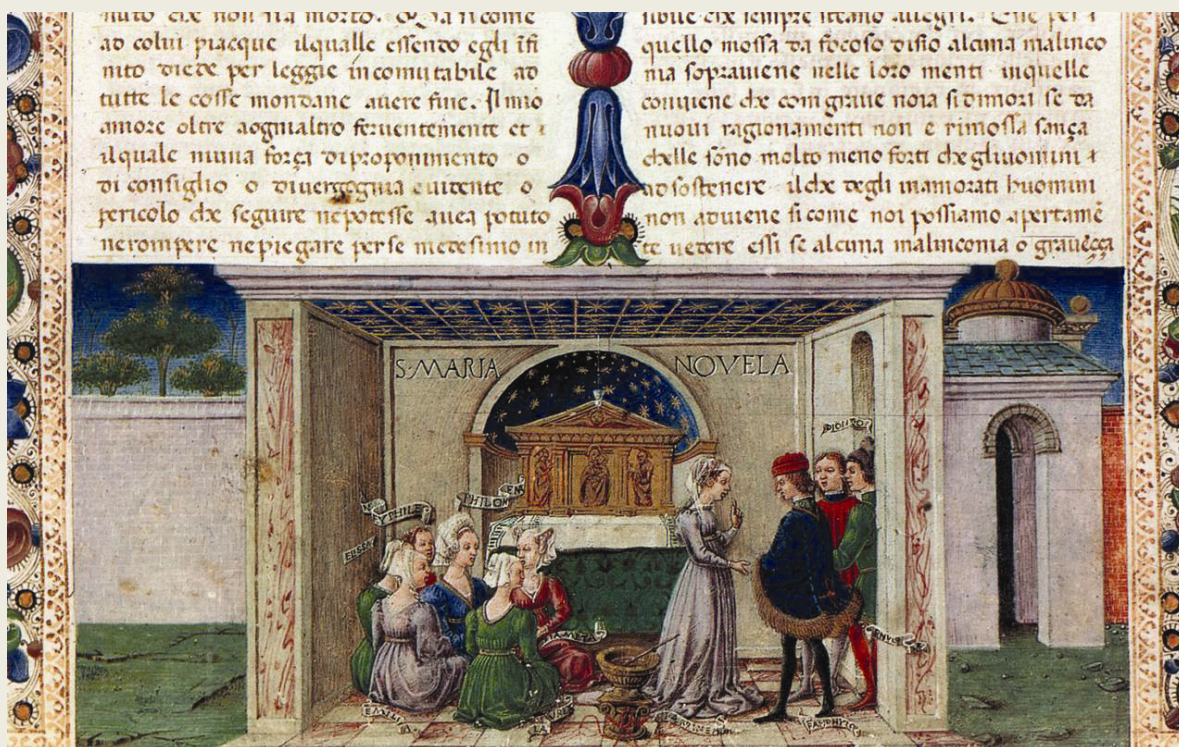 ad colui piacque ilqualle essendo egli ifi
nito diede per leggie incomutabile ad
tutte le cosse mondane avere fine. Il mio
amore oltre aognialtro ferventemente et
ilquale niuna força diproponimento o
di consiglio o divergognia evidente o
pericolo che seguire nepotesse avea potuto
nerompere nepiegare perse medesimo in
quello mossa da focoso disio alcuna malinco
nia sopraviene nelle loro menti inquelle
conviene che con girave noia si dimori se da
nuovi ragionamenti non e rimossa sança
chelle sono molto meno forti che gliuomini
ad sostenere ilche degli inamorati huomini
non adviene si come noi possiamo apertame
te vedere essi se alcuna malinconia o graveçça
S·MARIA NOVELA